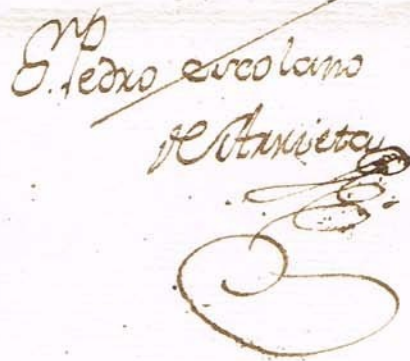 D. Pedro escolano
de Arrieta